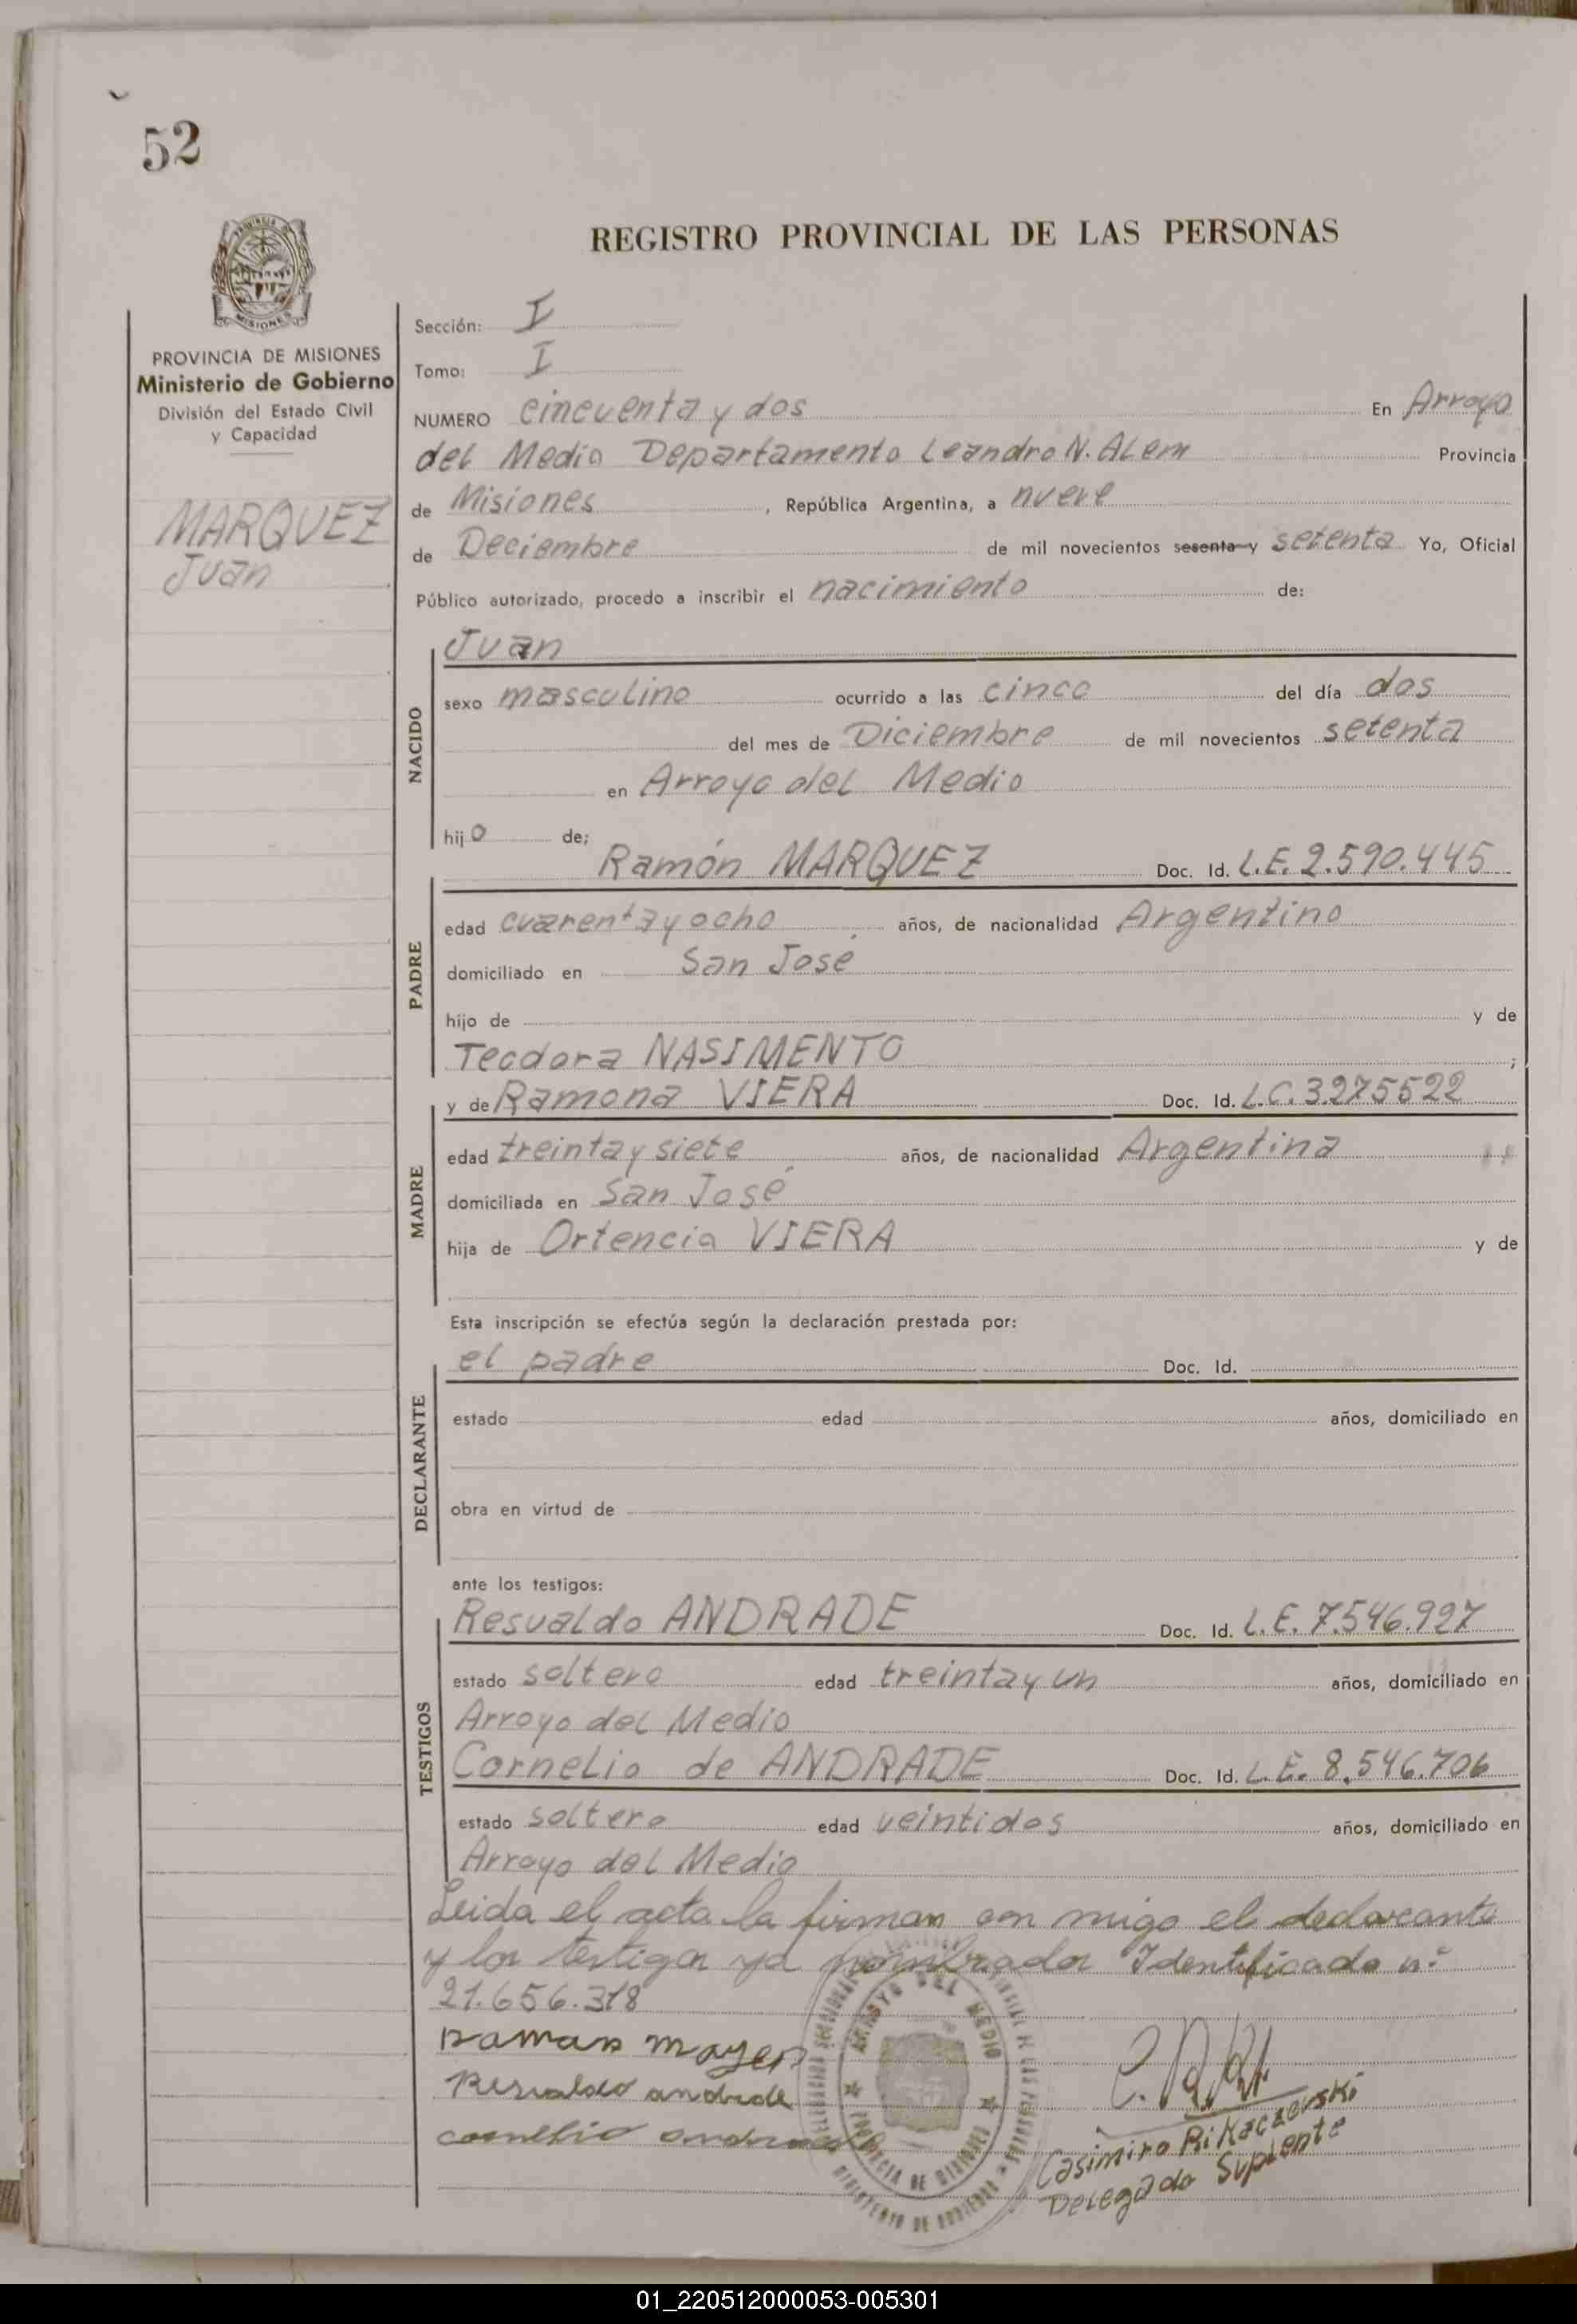 52
REGISTRO PROVINCIAL DE LAS PERSONAS
PROVINCIA DE MISIONES
Ministerio de Gobierno
División del Estado Civil
y Capacidad
MARQUEZ
Juan
Sección: I
Tomo: I
NUMERO cincuenta y dos En Arroyo
del Medio Departamento Leandro N. ALem Provincia
de Misiones, República Argentina, a nueve
de Deciembre de mil novecientos sesenta y setenta Yo, Oficial
Público autorizado, procedo a inscribir el nacimiento de:
NACIDO
Juan
sexo masculino ocurrido a las cinco del día dos
del mes de Diciembre de mil novecientos setenta
en Arroyo del Medio
hijo de;
Ramón MARQUEZ Doc. Id. L.E. 2.590.445
PADRE
edad cuarenta y ocho años, de nacionalidad Argentino
domiciliado en San José
hijo de y de
Teodora NASIMENTO ;
y de Ramona VIERA Doc. Id. L.C. 3275522
MADRE
edad treinta y siete años, de nacionalidad Argentina
domiciliada en San José
hija de Ortencia VIERA y de
Esta inscripción se efectúa según la declaración prestada por:
el padre Doc. Id.
DECLARANTE
estado edad años, domiciliado en
obra en virtud de
ante los testigos:
Resualdo ANDRADE Doc. Id. L.E. 7.546.927
TESTIGOS
estado soltero edad treinta y un años, domiciliado en
Arroyo del Medio
Cornelio de ANDRADE Doc. Id. L.E. 8.546.706
estado soltero edad veintidos años, domiciliado en
Arroyo del Medio
Leida el acta la firman con migo el declarante
y los testigos ya nombrados Identificado nº
21.656.318
Resualdo andrade
cornelio andrade
ARROYO DEL MEDIO
PROVINCIA DE MISIONES
MINISTERIO DE GOBIERNO
Casimiro Rikaczevski
Delegado Suplente
01_220512000053-005301